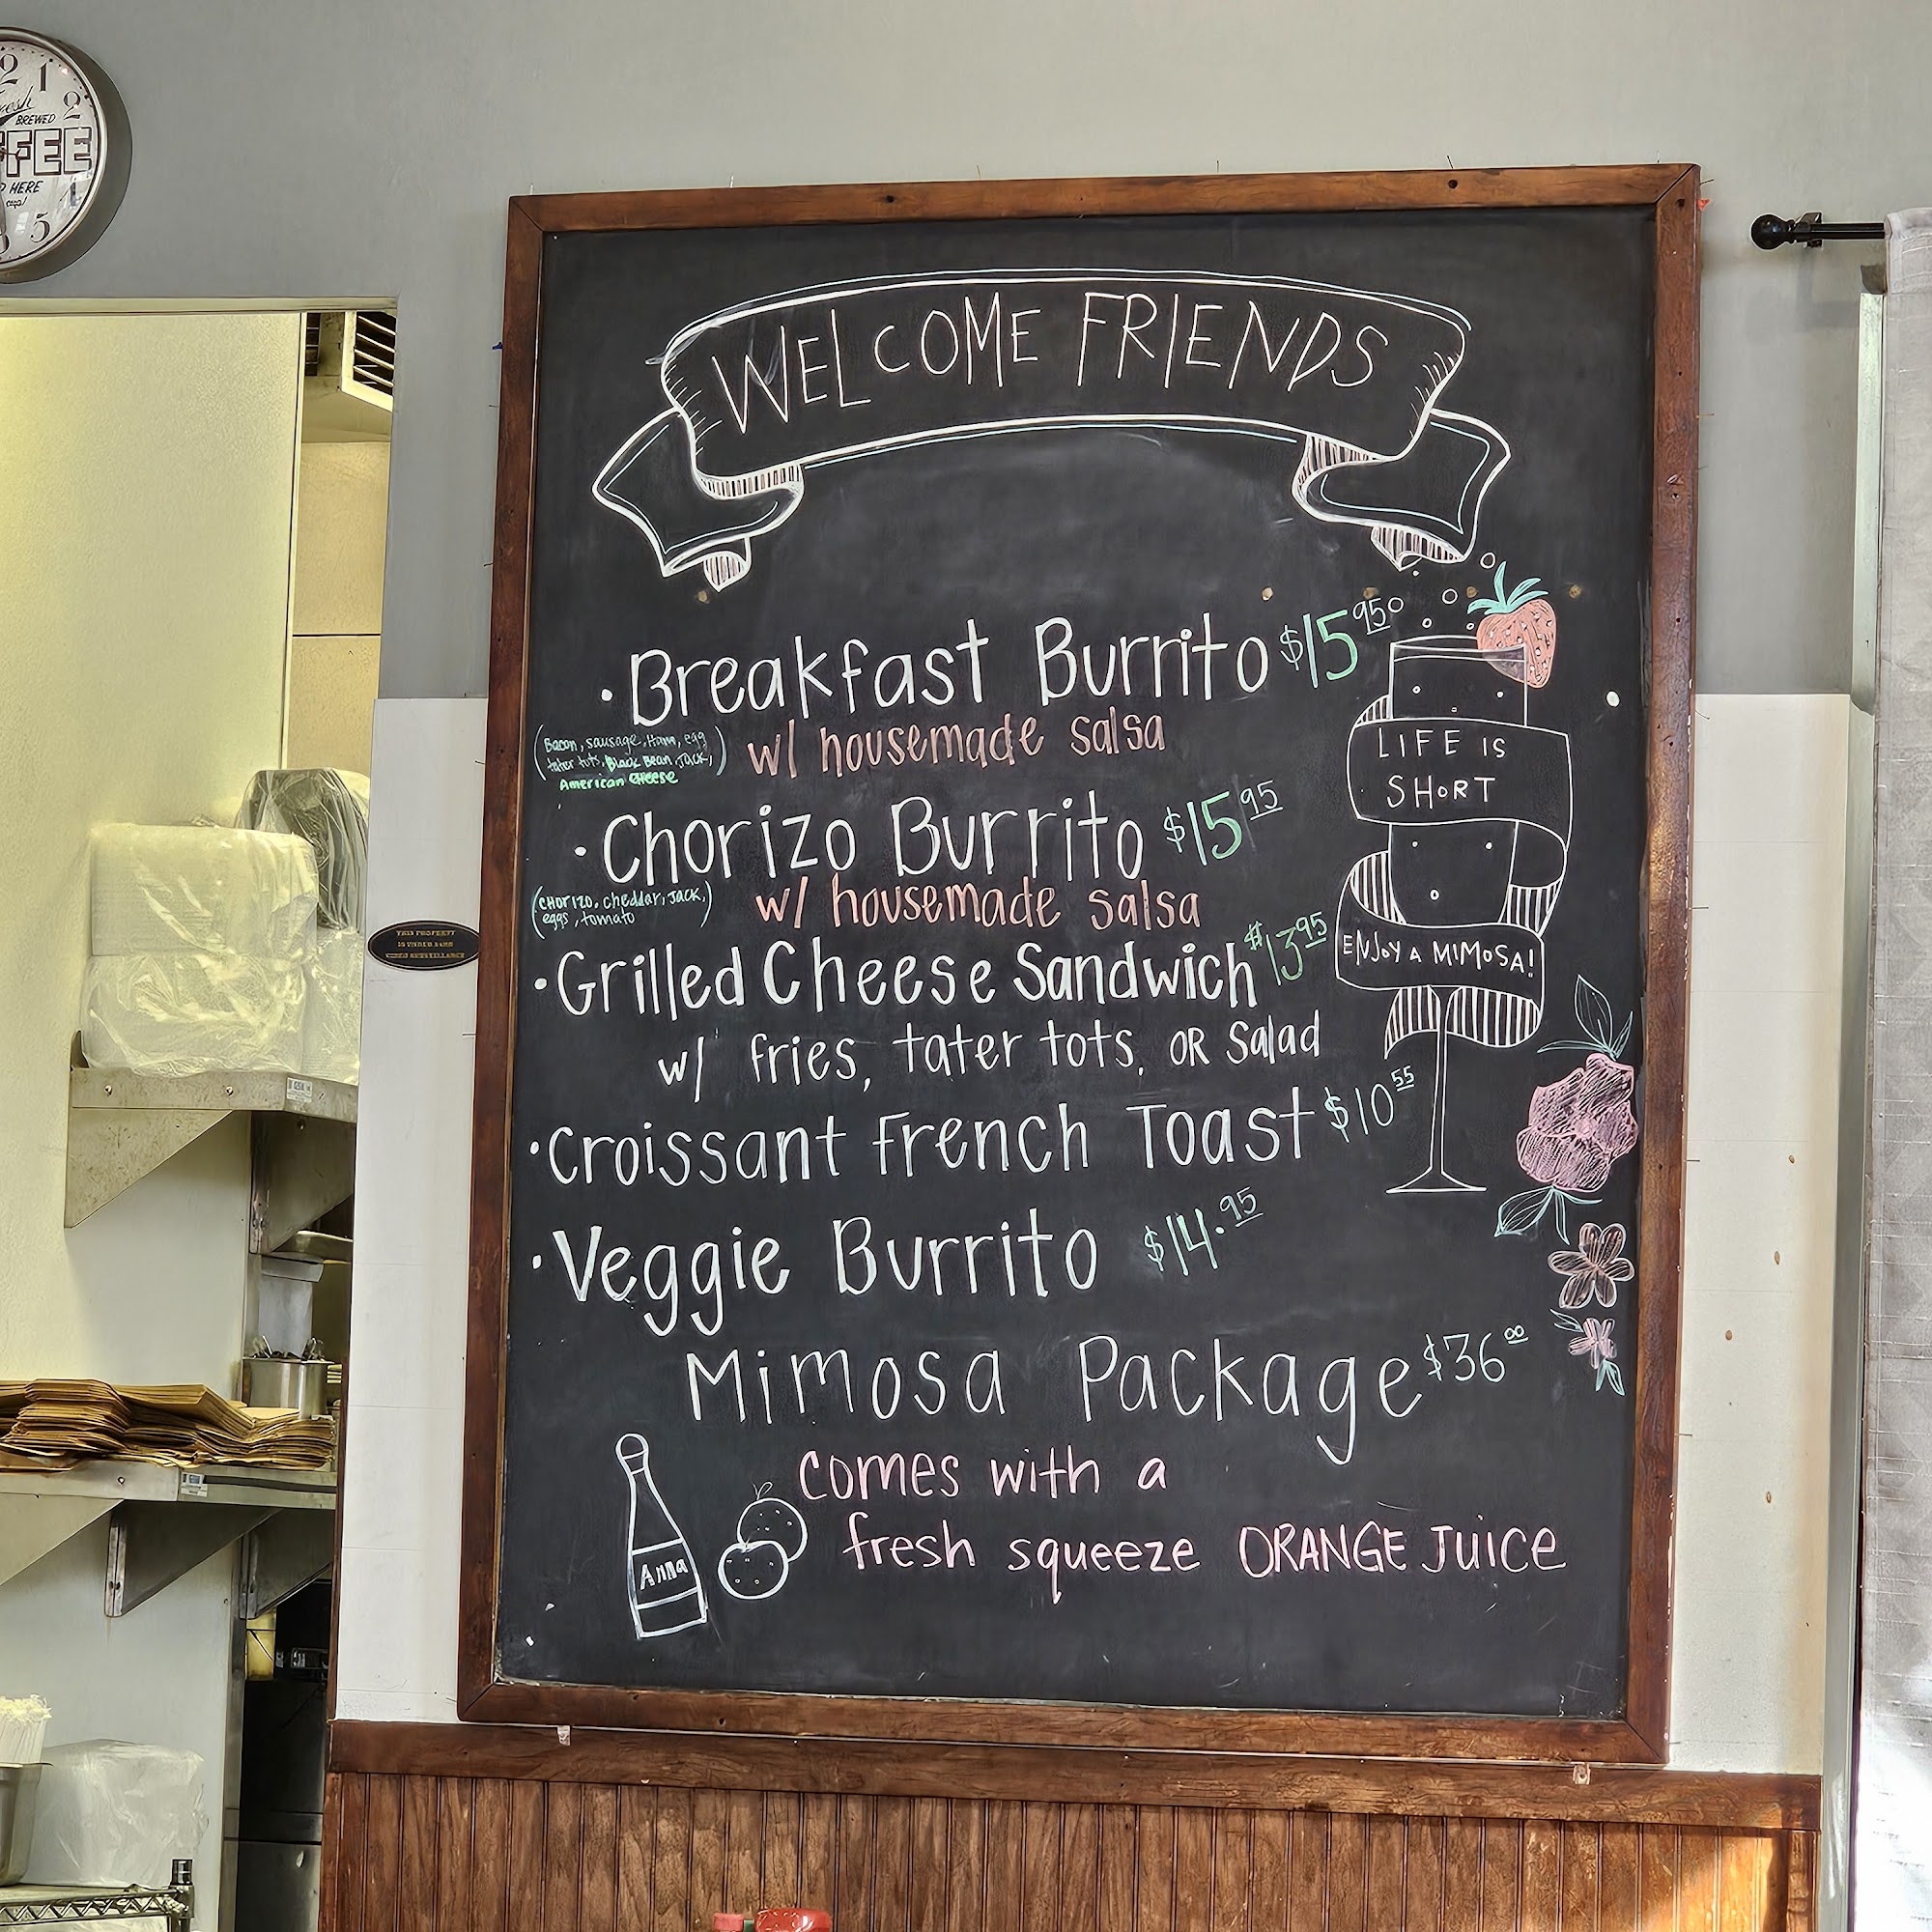 2 1
2
Fresh
BREWED
FFEE
HERE
5
WELCOME FRIENDS
• Breakfast Burrito $15.95
(Bacon, sausage, Ham, egg
tater tots, Black Bean, Jack,)
American cheese
w/ housemade salsa
• Chorizo Burrito $15 95
(CHORIZO, cheddar, Jack,)
eggs, tomato
w/ housemade salsa
• Grilled Cheese Sandwich $13 95
w/ fries, tater tots, OR Salad
• Croissant French Toast $10 55
• Veggie Burrito $14.95
Mimosa Package $36 00
comes with a
fresh squeeze ORANGE JUICE
Anna
LIFE IS
SHORT
ENJOY A MIMOSA!
THIS PROPERTY
IS UNDER
VIDEO SURVEILLANCE